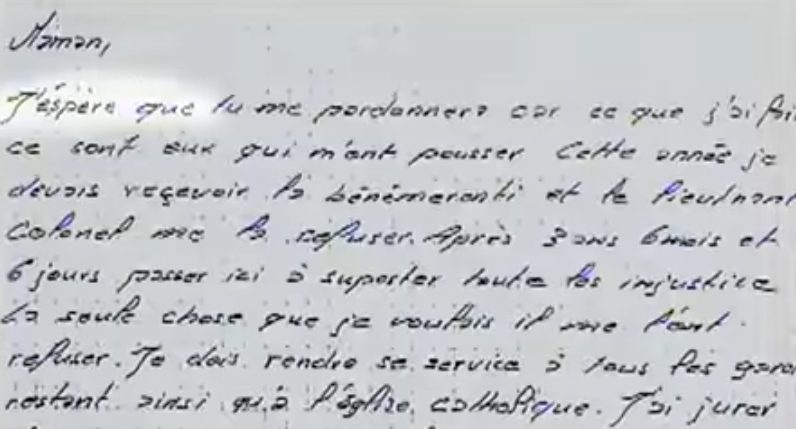 Maman,
J'éspère que tu me pardonnera car ce que j'ai fai
ce sont eux qui m'ont pousser Cette année je
devais reçevoir la bénémeranti et le lieutnant
Colonel me la refuser. Après 3 ans 6 mois et
6 jours passer ici à suporter toute les injustice
La seule chose que je voulais il me l'ont
refuser. Je dois rendre se service à tous les garde
restant ainsi qu'à l'église catholique. J'ai jurer